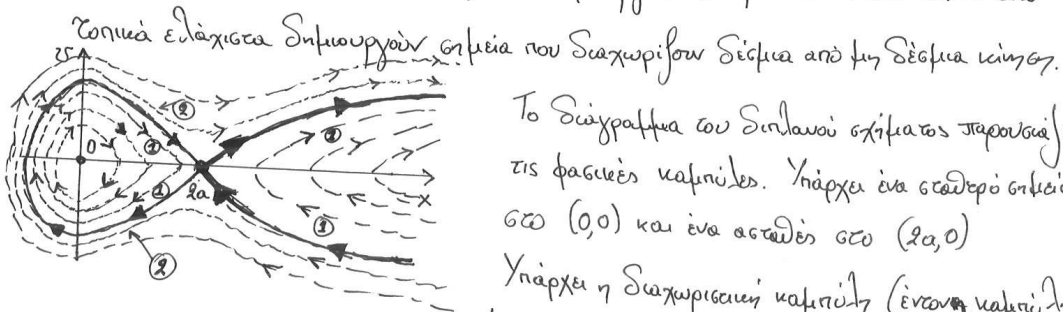 τοπικά ελάχιστα δημιουργούν σημεία που διαχωρίζουν δέσμια από μη δέσμια κίνηση.
Το διάγραμμα του διπλανού σχήματος παρουσιάζ
τις φασικές καμπύλες. Υπάρχει ένα σταθερό σημεί
στο (0,0) και ένα ασταθές στο (2a,0)
Υπάρχει η διαχωριστική καμπύλη (έντονη καμπύλ
υ
②
①
②
0
①
2a
x
③
②